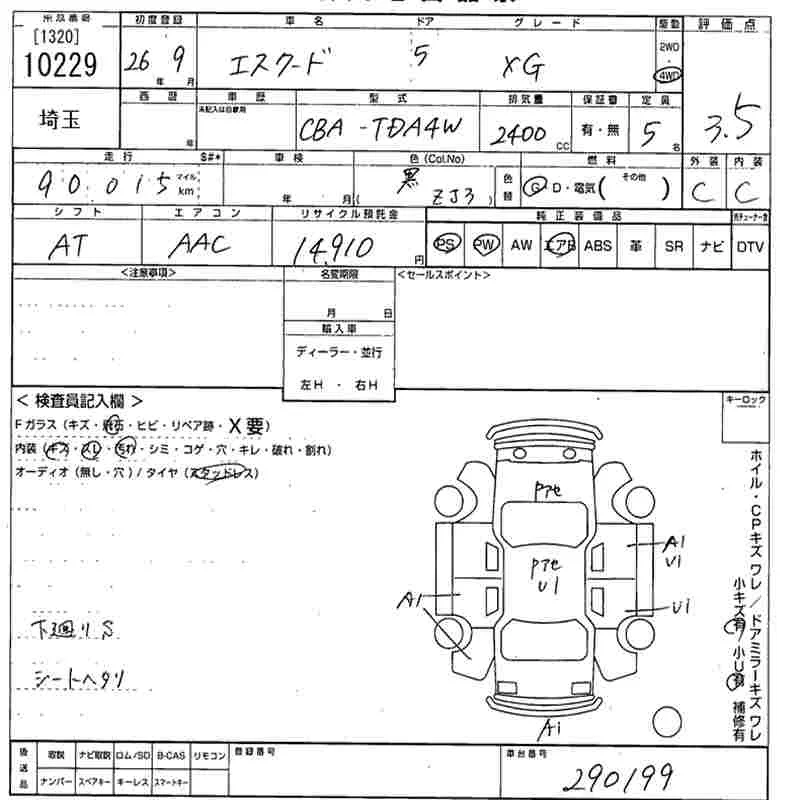 出品番号 初度登録 車名 ドア グレード 駆動 評価点
[1320]
10229 26 9 エスクード 5 XG 2WD 4WD 3.5
年 月
埼玉 西暦 車歴 型式 排気量 保証書 定員
未記入は自家用
年 CBA-TDA4W 2400 CC 有・無 5 名
走行 S#* 車検 色(Col.No) 色替 燃料 外装 内装
90,015 マイル km 年 月 黒 (ZJ3) G D・電気(その他) C C
シフト エアコン リサイクル預託金 純正装備品
AT AAC 14,910 円 PS PW AW エアB ABS 革 SR ナビ DTV
<注意事項> 名変期限 <セールスポイント>
月 日
輸入車
ディーラー・並行
左H ・ 右H
キーロック
< 検査員記入欄 >
Fガラス(キズ・飛石・ヒビ・リペア跡・X要)
内装(キズ・スレ・汚れ・シミ・コゲ・穴・キレ・破れ・割れ)
オーディオ(無し・穴)/タイヤ(スタッドレス)
Pアセ
Pアセ
U1
A1
U1
U1
A1
A1
下廻りS
シートヘタリ
ホイル・CPキズワレ/ドアミラーキズワレ
小キズ有/小U有 補修有
後送品 取説 ナビ取説 ロム/SD B-CAS リモコン 登録番号 車台番号
ナンバー スペアキー キーレス スマートキー 290199